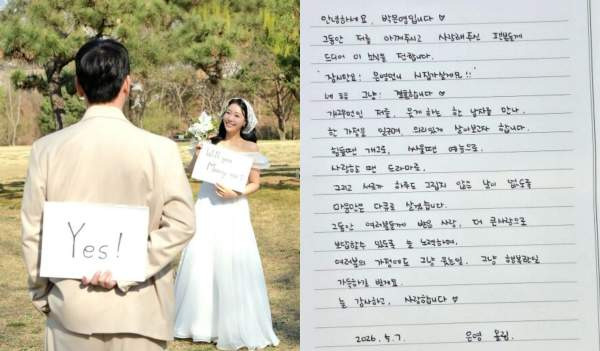 Will you
Marry me?
Yes!
안녕하세요, 박은영입니다 ♡
그동안 저를 아껴주시고 사랑해주신 팬분들께
드디어 이 소식을 전합니다.
"잠시만요! 은영언니 시집가실게요!!"
네 저 그냥! 결혼합니다 ♡
개그우먼인 저를, 웃게 하는 한 남자를 만나
한 가정을 이루며 의리있게 살아보고자 합니다.
힘들땐 개그로, 싸울땐 예능으로,
사랑할 땐 드라마로,
그리고 서로가 하루도 그립지 않은 날이 없도록
마음만은 다큐로 살겠습니다.
그동안 여러분들께 받은 사랑, 더 큰사랑으로
보답할수 있도록 늘 노력하며,
여러분의 가정에도 그냥 웃는일, 그냥 행복한일
가득하길 바래요.
늘 감사하고, 사랑합니다 ♡
2026. 5. 7. 은영 올림.